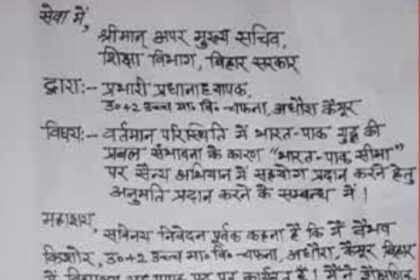 सेवा में,
श्रीमान् अपर मुख्य सचिव,
शिक्षा विभाग, बिहार सरकार
द्वारा:- प्रभारी प्रधानाध्यापक,
उ०+2 उच्च मा० वि० चफना, अधौरा कैमूर
विषय:- वर्तमान परिस्थिति में भारत-पाक युद्ध की
प्रबल संभावना के कारण "भारत-पाक सीमा"
पर सैन्य अभियान में सहयोग प्रदान करने हेतु
अनुमति प्रदान करने के सम्बन्ध में।
महाशय,
सविनय निवेदन पूर्वक कहना है कि मैं वैभव
किशोर, उ०+2 उच्च मा० वि० चफना, अधौरा, कैमूर बिहार
में विद्यालय अध्यापक पद पर कार्यरत हूँ। मैंने